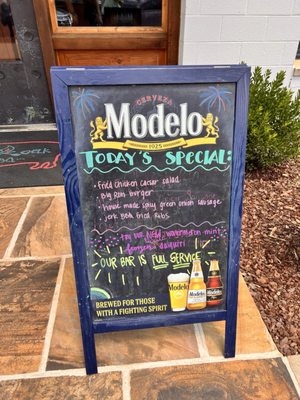 CERVEZA
Modelo
1925
TODAY'S SPECIAL:
• Fried Chicken Caesar salad
Big Rib Burger
• House made spicy green onion sausage
• Jerk BBQ Fried Ribs
try our NEW watermelon mint
daiquiri
OUR BAR is FULL SERVICE
BREWED FOR THOSE
WITH A FIGHTING SPIRIT
Modelo
Modelo
Modelo